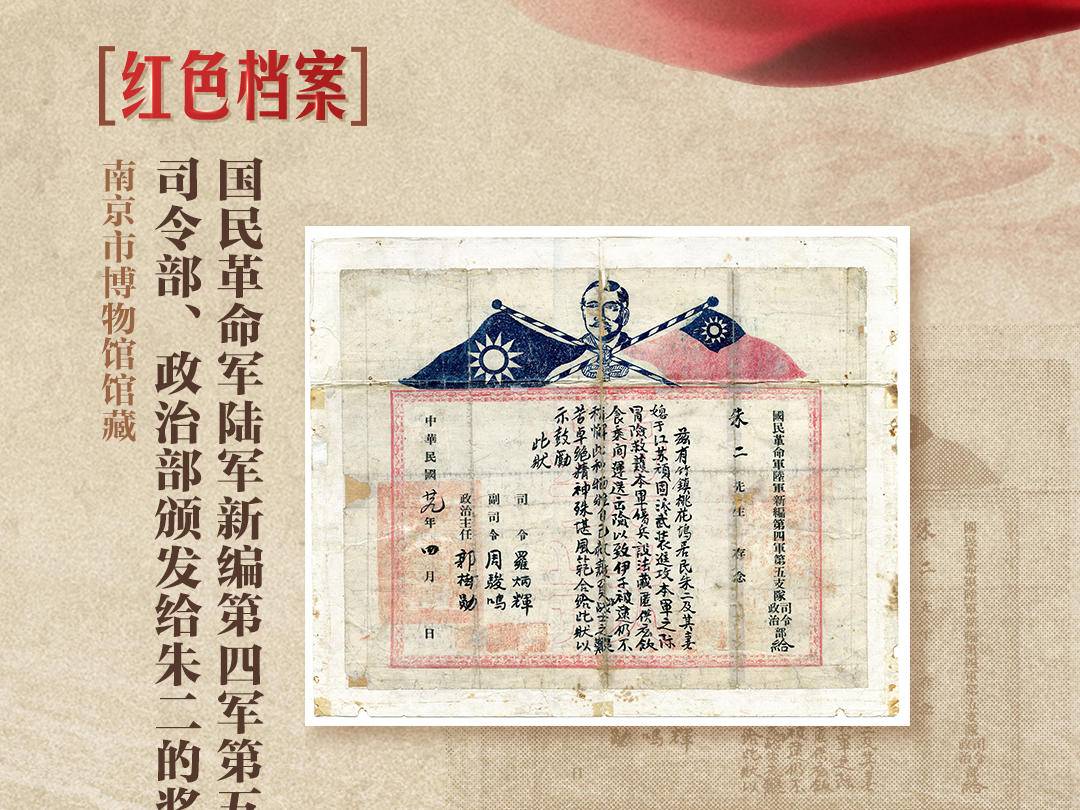 红色档案
国民革命军陆军新编第四军第五
司令部、政治部颁发给朱二的奖
南京市博物馆馆藏
國民革命軍陸軍新編第四軍第五支隊司令政治部給
朱二先生存念
茲有竹鎮桃花塢居民朱二及其妻
于江苏頑固派武装進攻本軍之际
冒險救護本軍傷兵設法藏匿供应飲
食乘间運送出險以致伊子被逮仍不
苦卓絕精神殊堪風範合给此狀以
示鼓勵
此狀
司令 羅炳輝
副司令 周駿鳴
政治主任 郭樹勋
中華民國廿九年四月日